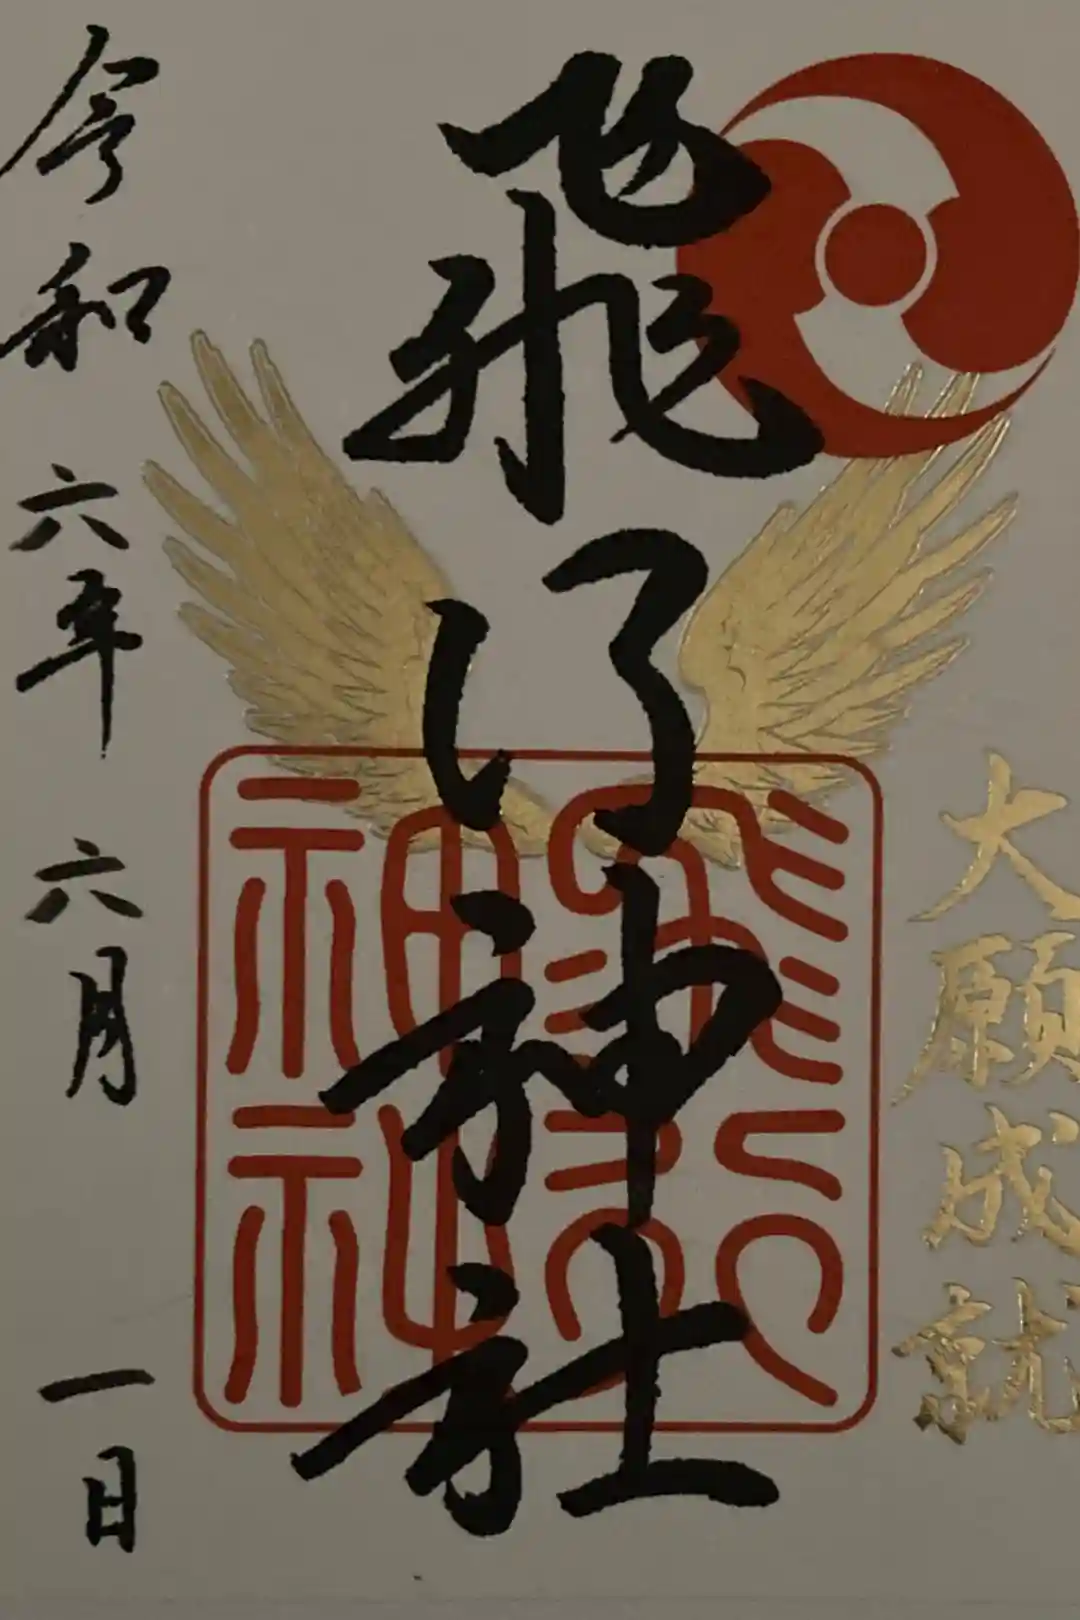 大願成就
飛行神社
令和六年六月一日